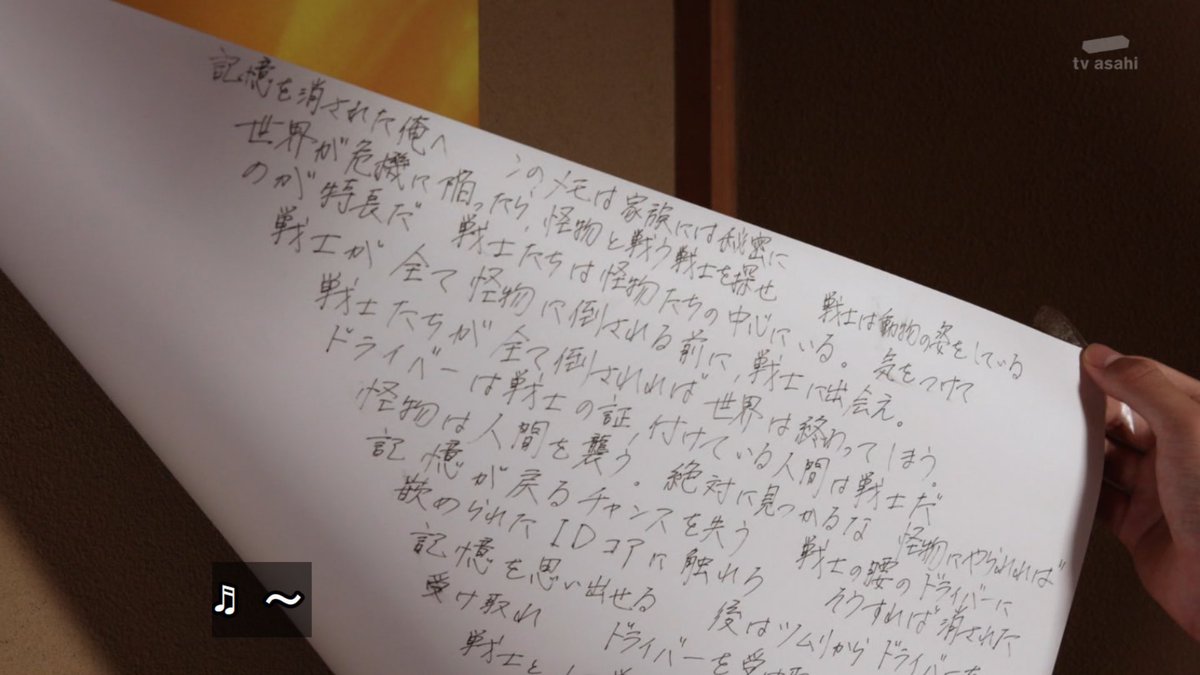 tv asahi
記憶を消された俺へ　このメモは家族には秘密に
世界が危機に陥ったら、怪物と戦う戦士を探せ　戦士は動物の姿をしている
のが特長だ　戦士たちは怪物たちの中心にいる。気をつけて
戦士が全て怪物に倒される前に、戦士に出会え。
戦士たちが全て倒されれば世界は終わってしまう。
ドライバーは戦士の証、付けている人間は戦士だ
怪物は人間を襲う。絶対に見つかるな　怪物にやられれば
記憶が戻るチャンスを失う　戦士の腰のドライバーに
嵌められたIDコアに触れろ　そうすれば消された
記憶を思い出せる　後はツムリからドライバーを
受け取れ　ドライバーを受け
戦士と
♬ 〜